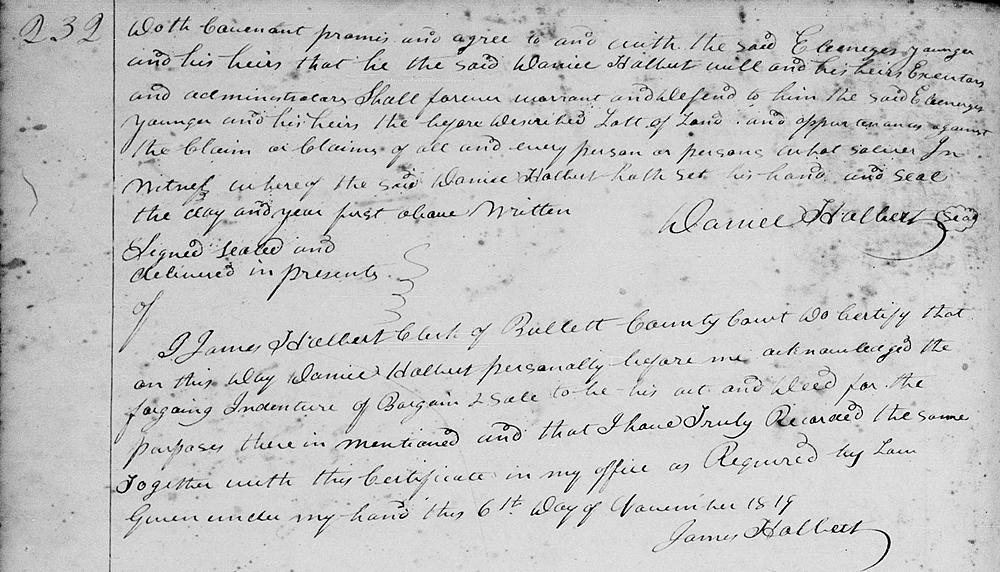 232
Doth Covenant promis and agree to and with the said Ebenezer younger
and his heirs that he the said Daniel Halbert will and his heirs Executors
and administrators Shall forever warrant and Defend to him the said Ebenezer
younger and his heirs the before Described Lott of Land and appurtenances against
the Claim or Claims of all and every person or persons what soever In
Witness whereof the said Daniel Halbert hath set his hand and seal
the Day and year first above Written
Daniel Halbert Seal
Signed sealed and
delivered in presents
of
I James Halbert Clerk of Bullett County Court Do Certify that
on this Day Daniel Halbert personally before me acknowledged the
forgaing Indenture of Bargain & Sale to be his act and Deed for the
purposes there in mentioned and that I have Truly Recorded the same
Together with this Certificate in my office as Required by Law
Given under my hand this 6th Day of November 1819
James Halbert